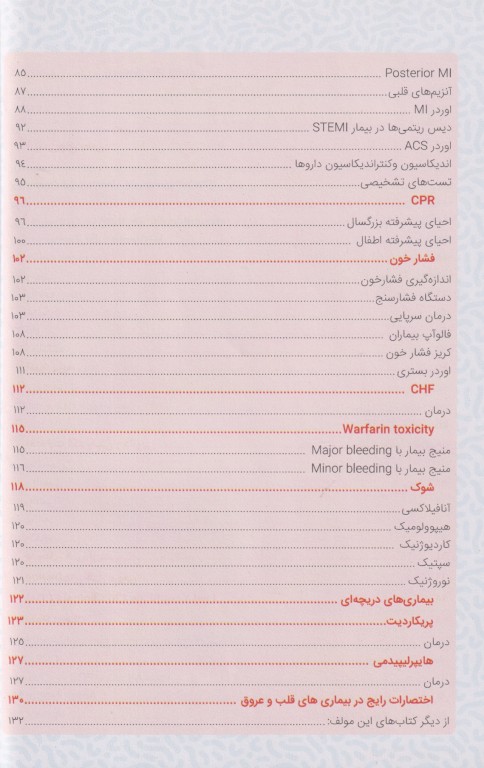 Posterior MI ........ ۸۵
آنزیم‌های قلبی ........ ۸۷
اوردر MI ........ ۸۸
دیس ریتمی‌ها در بیمار STEMI ........ ۹۲
اوردر ACS ........ ۹۳
اندیکاسیون وکنتراندیکاسیون داروها ........ ۹۴
تست‌های تشخیصی ........ ۹۵
CPR ........ ۹۶
احیای پیشرفته بزرگسال ........ ۹۶
احیای پیشرفته اطفال ........ ۱۰۰
فشار خون ........ ۱۰۲
اندازه‌گیری فشارخون ........ ۱۰۲
دستگاه فشارسنج ........ ۱۰۳
درمان سرپایی ........ ۱۰۳
فالوآپ بیماران ........ ۱۰۸
کریز فشار خون ........ ۱۰۸
اوردر بستری ........ ۱۱۱
CHF ........ ۱۱۲
درمان ........ ۱۱۲
Warfarin toxicity ........ ۱۱۵
منیج بیمار با Major bleeding ........ ۱۱۵
منیج بیمار با Minor bleeding ........ ۱۱۶
شوک ........ ۱۱۸
آنافیلاکسی ........ ۱۱۹
هیپوولومیک ........ ۱۲۰
کاردیوژنیک ........ ۱۲۰
سپتیک ........ ۱۲۰
نوروژنیک ........ ۱۲۱
بیماری‌های دریچه‌ای ........ ۱۲۲
پریکاردیت ........ ۱۲۳
درمان ........ ۱۲۵
هایپرلیپیدمی ........ ۱۲۷
درمان ........ ۱۲۷
اختصارات رایج در بیماری های قلب و عروق ........ ۱۳۰
از دیگر کتاب‌های این مولف: ........ ۱۳۲